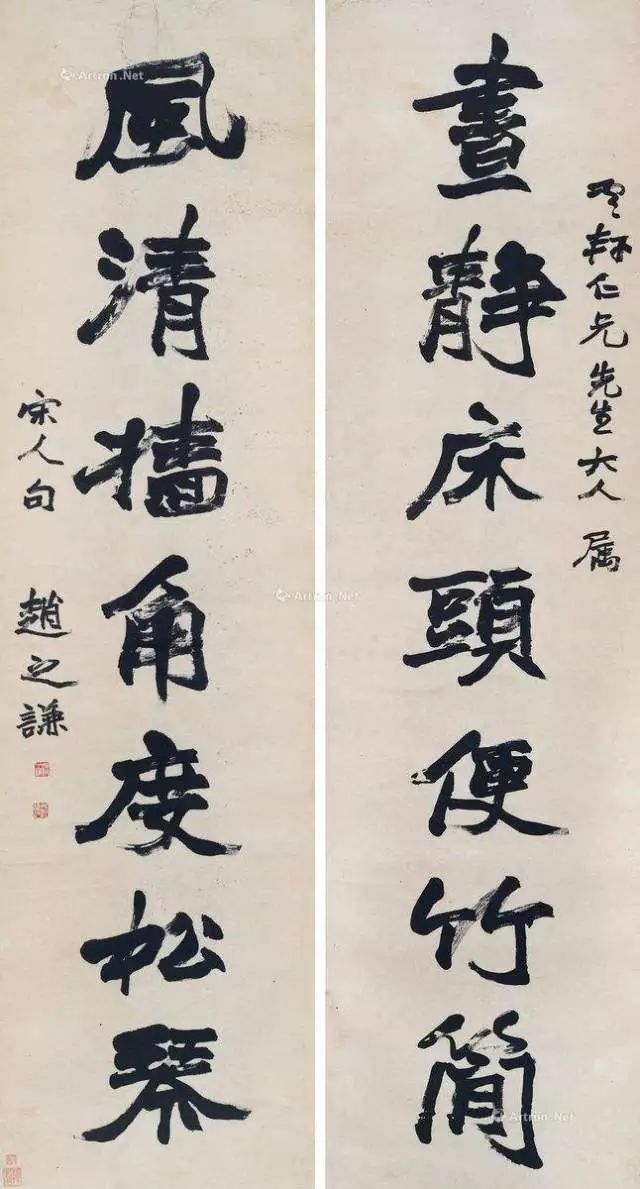 仁兄先生大人屬
晝靜床頭便竹簡
風清牆角度松琴
宋人句 趙之謙
Artron.Net
Artron.Net
Artron.Net